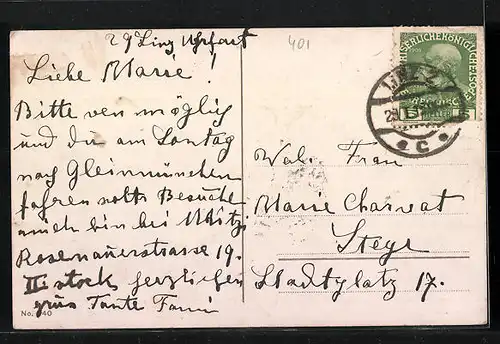 29 Linz Urfart
401
Liebe Marie!
Bitte wen möglich
und du am Sontag
nach Gleinmünchen
fahren solst Besuche
mich bin bei Mitzi
Rosenauerstrasse 19.
II. stock herzlichen
grus Tante Fanni
No. 340
KAISERLICHE KÖNIGLICHE
5 HELLER 5
LINZ 2
C
Wol. Frau
Marie Charwat
Steyr
Stadtplatz 17.